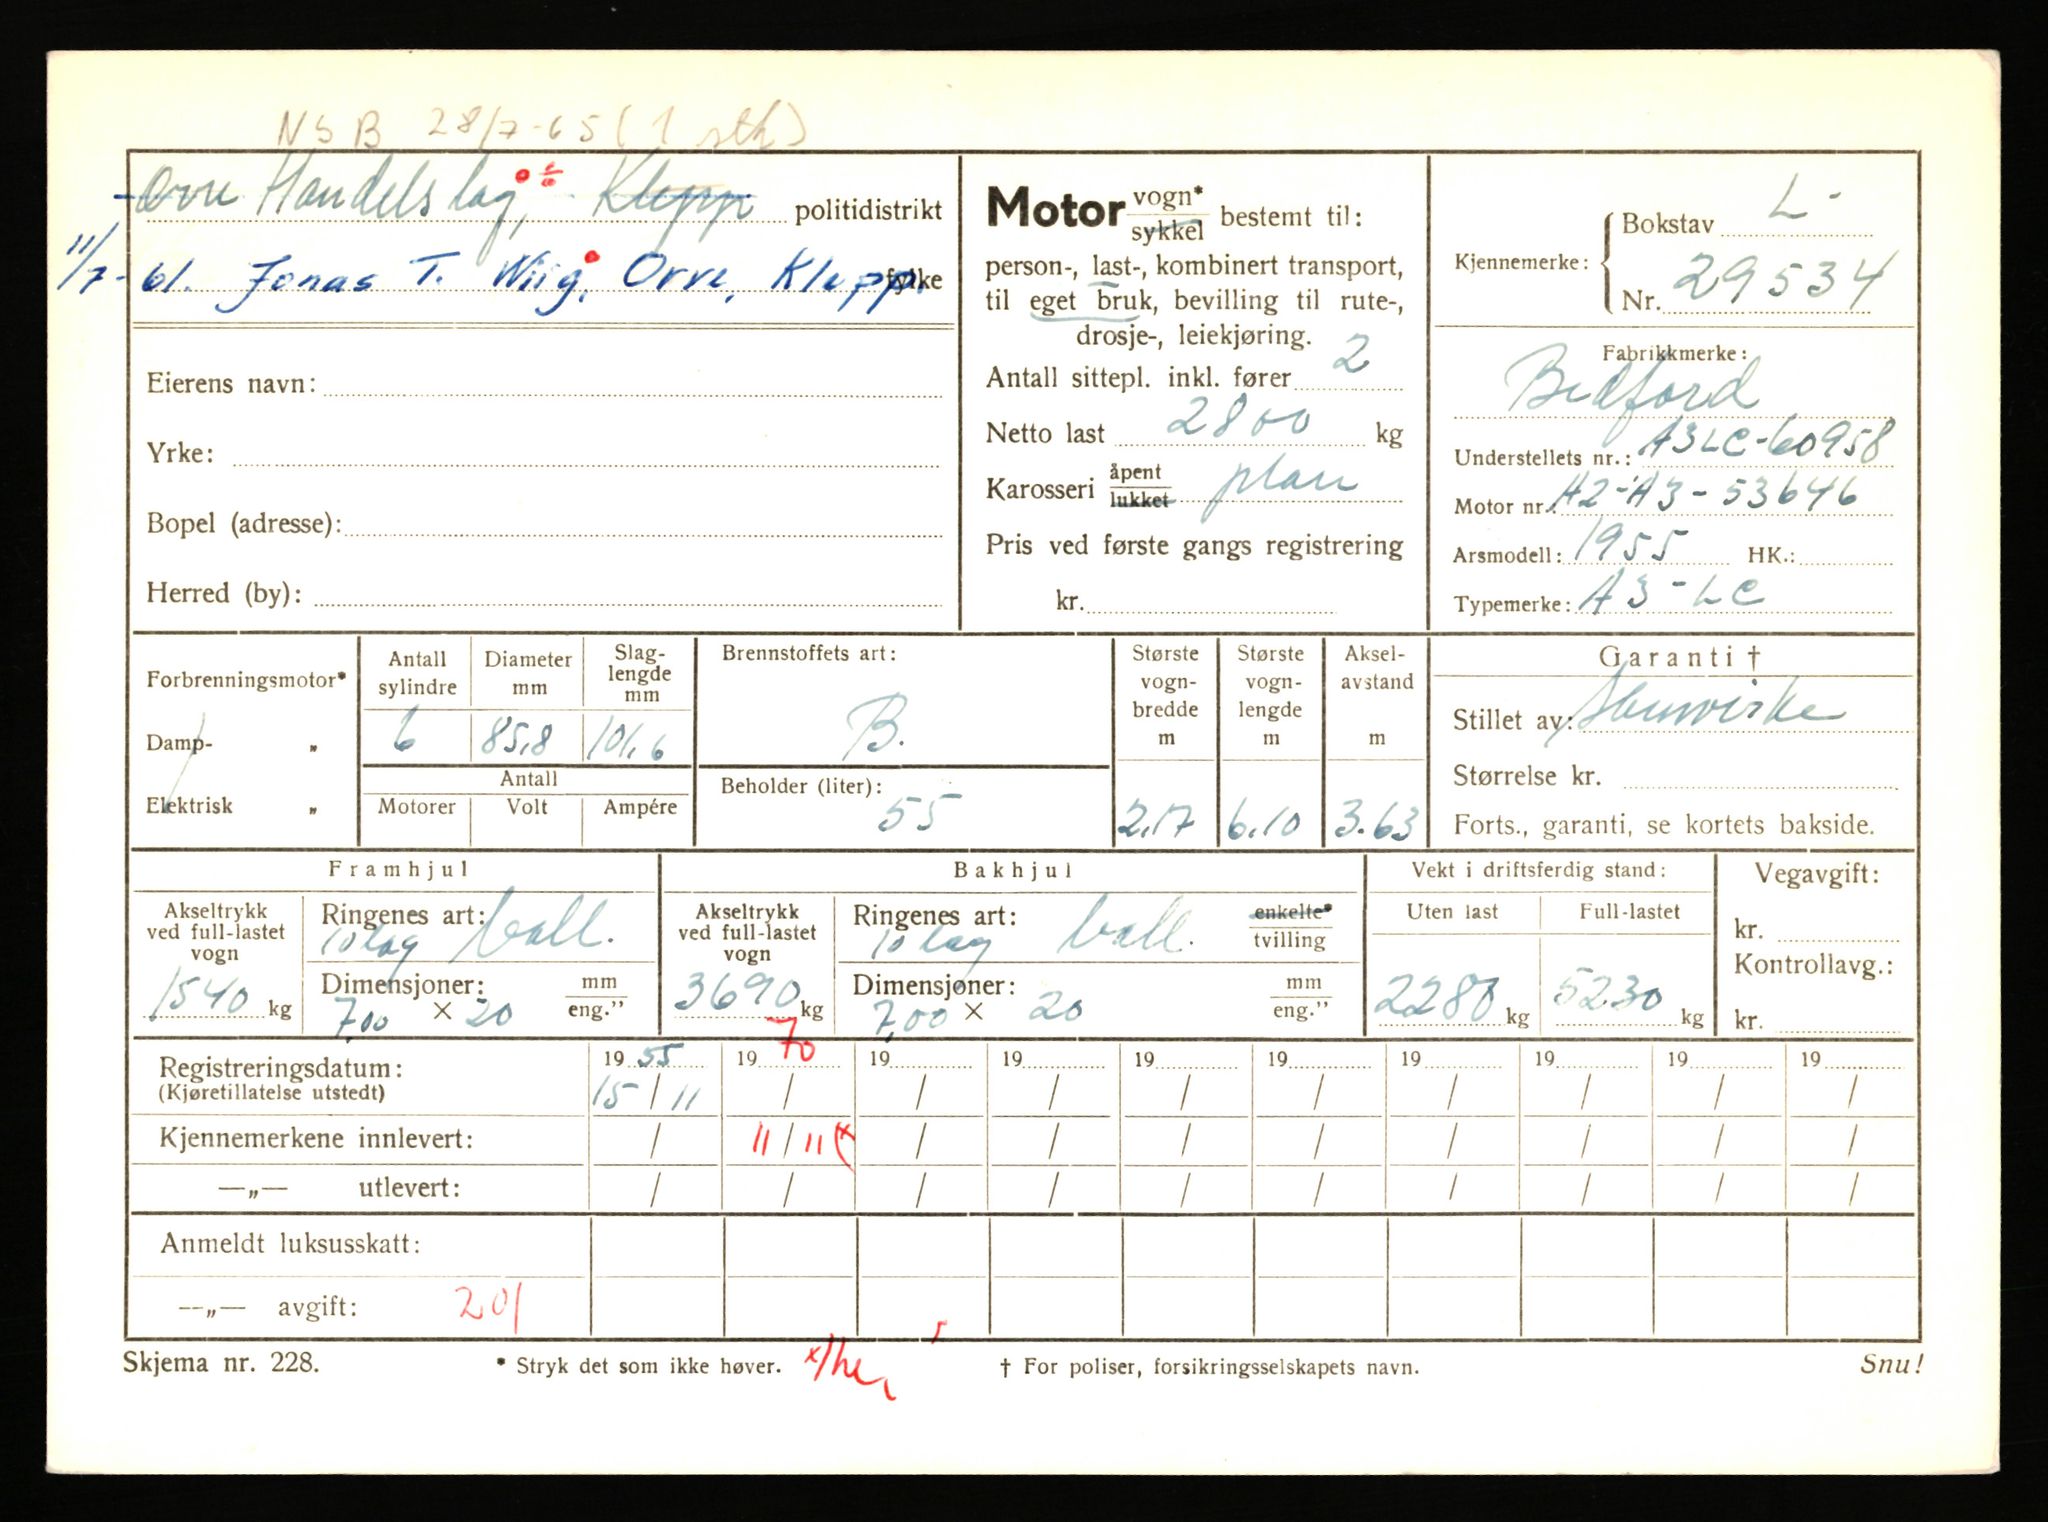 NSB 28/7-65 (1 stk)
Orre Handelslag, Klepp politidistrikt
11/7-61. Jonas T. Wiig, Orre, Klepp. fylke
Eierens navn:
Yrke:
Bopel (adresse):
Herred (by):
Motor vogn* sykkel bestemt til:
person-, last-, kombinert transport,
til eget bruk, bevilling til rute-,
drosje-, leiekjøring.
Antall sittepl. inkl. fører 2
Netto last 2800 kg
Karosseri åpent lukket plan
Pris ved første gangs registrering
kr.
Kjennemerke: Bokstav L-
Nr. 29534
Fabrikkmerke:
Bedford
Understellets nr.: A3LC-60958
Motor nr.: A2-A3-53646
Arsmodell: 1955 HK.:
Typemerke: A3-LC
Forbrenningsmotor*
Damp- „
Elektrisk „
Antall sylindre 6
Diameter mm 85,8
Slaglengde mm 101,6
Antall
Motorer Volt Ampére
Brennstoffets art:
B.
Beholder (liter):
55
Største vognbredde m 2,17
Største vognlengde m 6.10
Akselavstand m 3.63
Garanti †
Stillet av:
Størrelse kr.
Forts., garanti, se kortets bakside.
Framhjul
Akseltrykk ved full-lastet vogn
1540 kg
Ringenes art: 10 lag ball.
Dimensjoner: 7,00 × 20 mm eng."
Bakhjul
Akseltrykk ved full-lastet vogn
3690 kg
Ringenes art: 10 lag ball. enkelte* tvilling
Dimensjoner: 7,00 × 20 mm eng."
Vekt i driftsferdig stand:
Uten last Full-lastet
2280 kg 5230 kg
Vegavgift:
kr.
Kontrollavg.:
kr.
Registreringsdatum: 19 55 19 70 19 19 19 19 19 19 19 19
(Kjøretillatelse utstedt) 15 / 11 / / / / / / / / /
Kjennemerkene innlevert: / 11 / 11 (x / / / / / / / /
—„— utlevert: / / / / / / / / / /
Anmeldt luksusskatt:
—„— avgift: 201
Skjema nr. 228. * Stryk det som ikke høver. † For poliser, forsikringsselskapets navn. Snu!